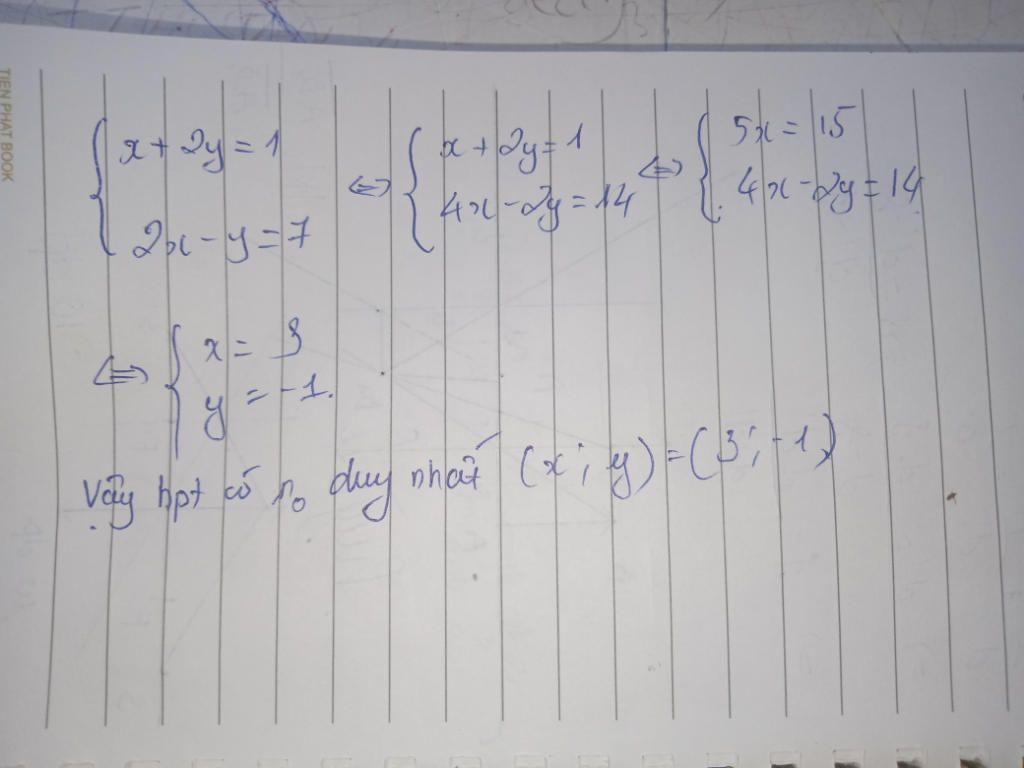 TIEN PHAT BOOK
{ x + 2y = 1
2x - y = 7
<=> { x + 2y = 1
4x - 2y = 14
<=> { 5x = 15
4x - 2y = 14
<=> { x = 3
y = -1.
Vậy hpt có n₀ duy nhất (x; y) = (3; -1)